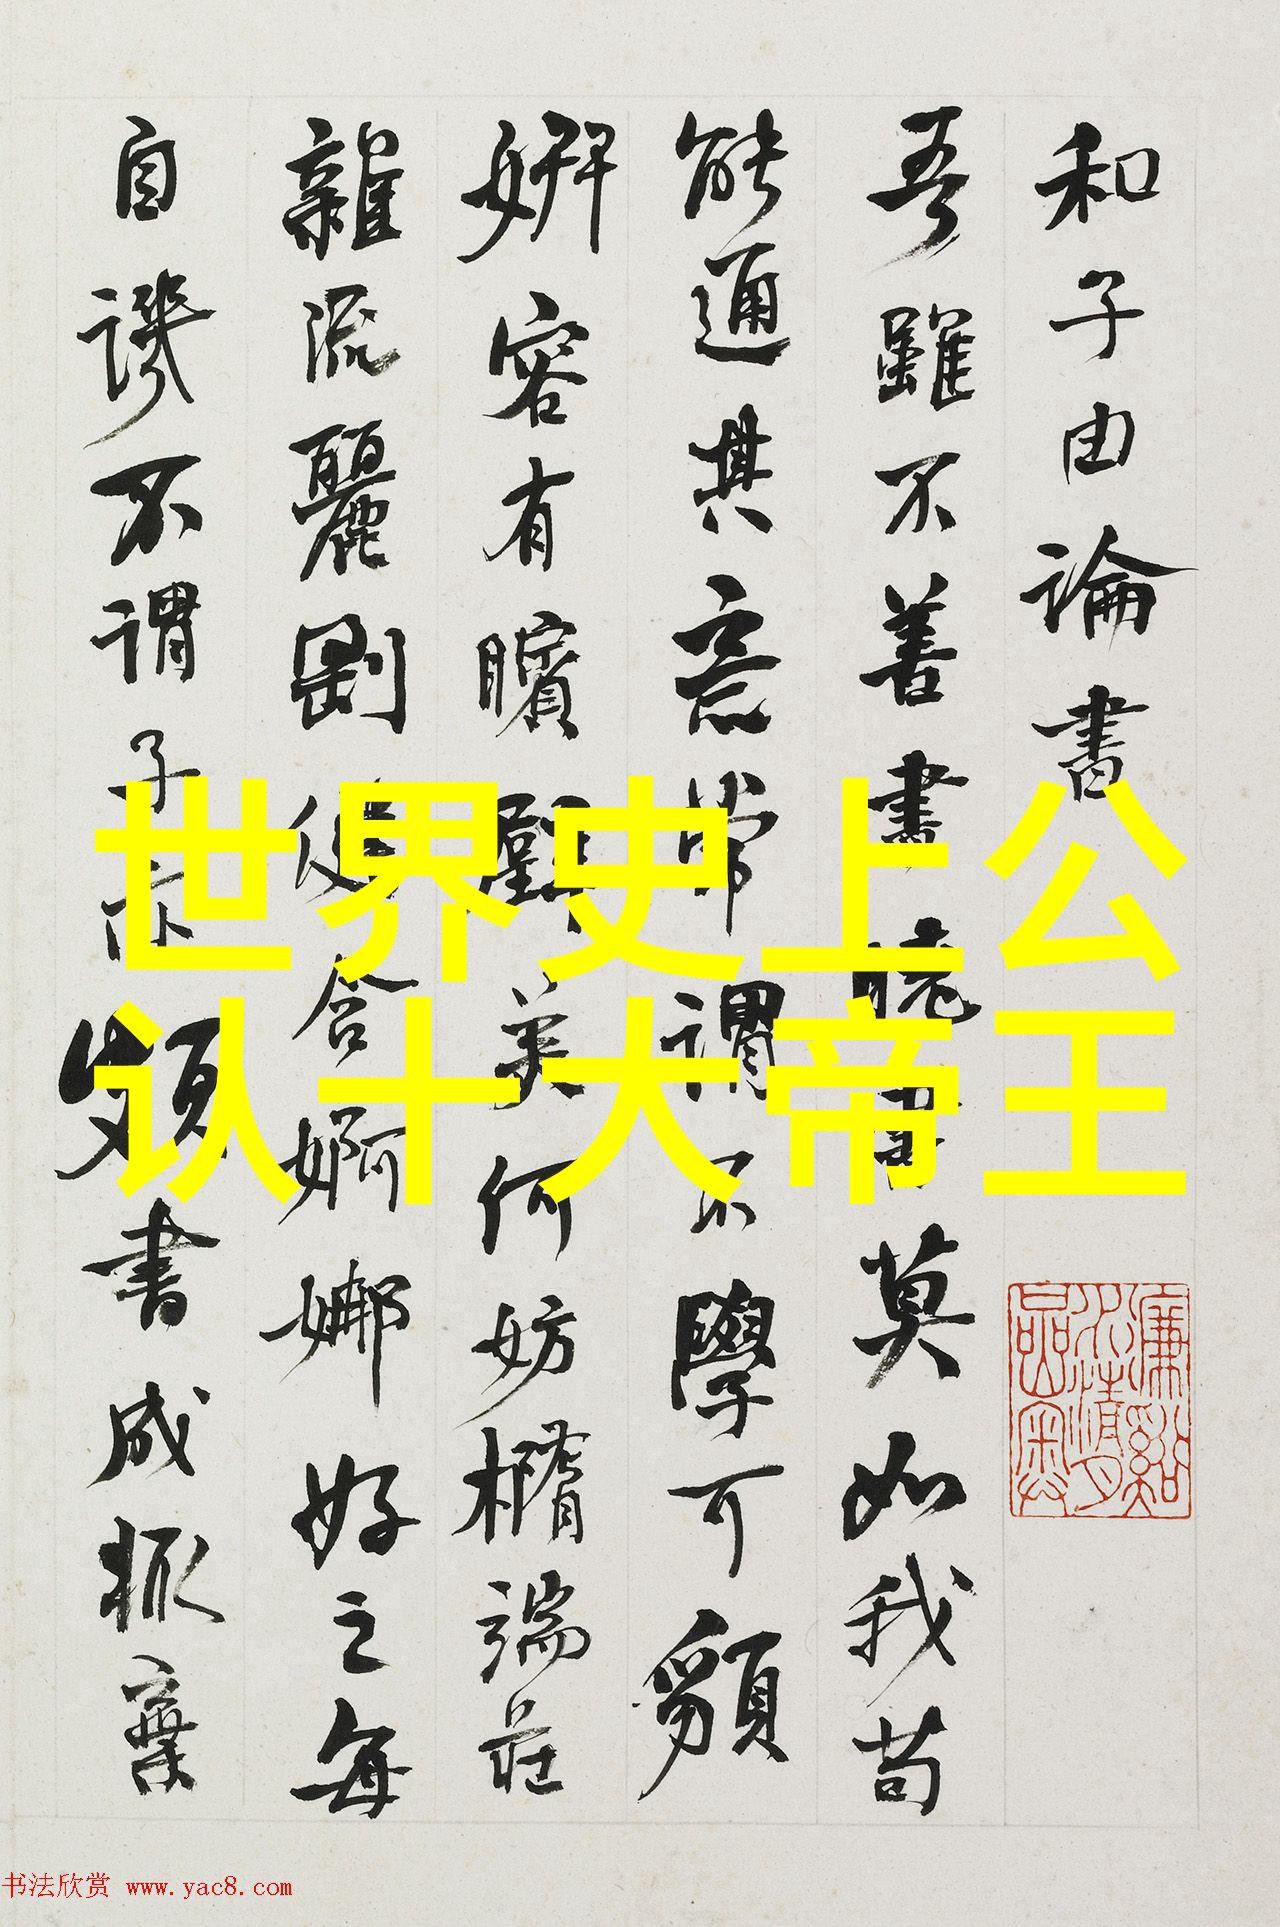 和子由論書
吾雖不善書曉書莫如我苟
能通其意常謂不學可䫉
姸容有矉璧美何妨橢端莊
雜流麗剛健含婀娜好之每
自譏不謂子亦頗書成輒棄
世界史上公
认十大帝王
书法欣赏 www.yac8.com